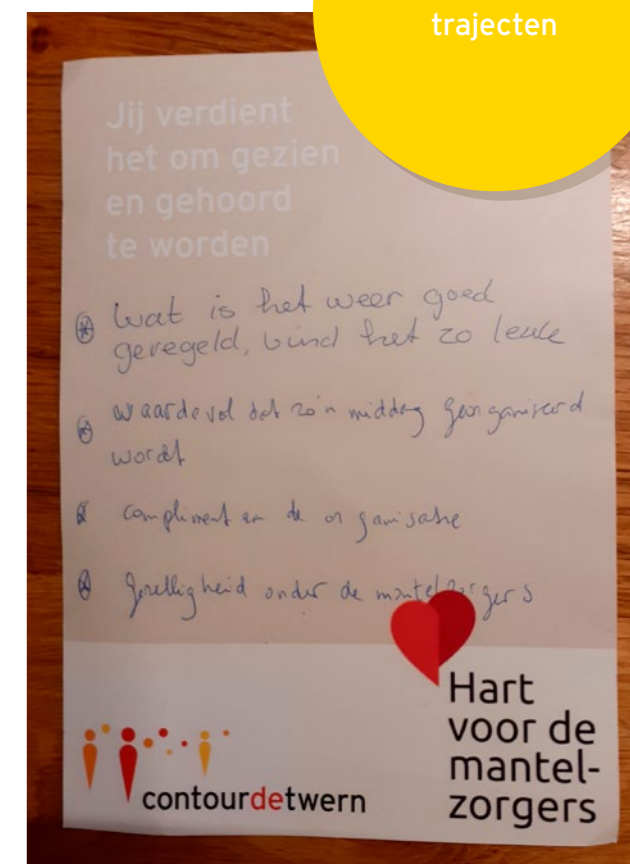 trajecten
Jij verdient
het om gezien
en gehoord
te worden
wat is het weer goed
geregeld, vind het zo leuk
waardevol dat zo'n middag georganiseerd
wordt
compliment en de organisatie
gezelligheid onder de mantelzorgers
Hart
voor de
mantel-
zorgers
contourdetwern